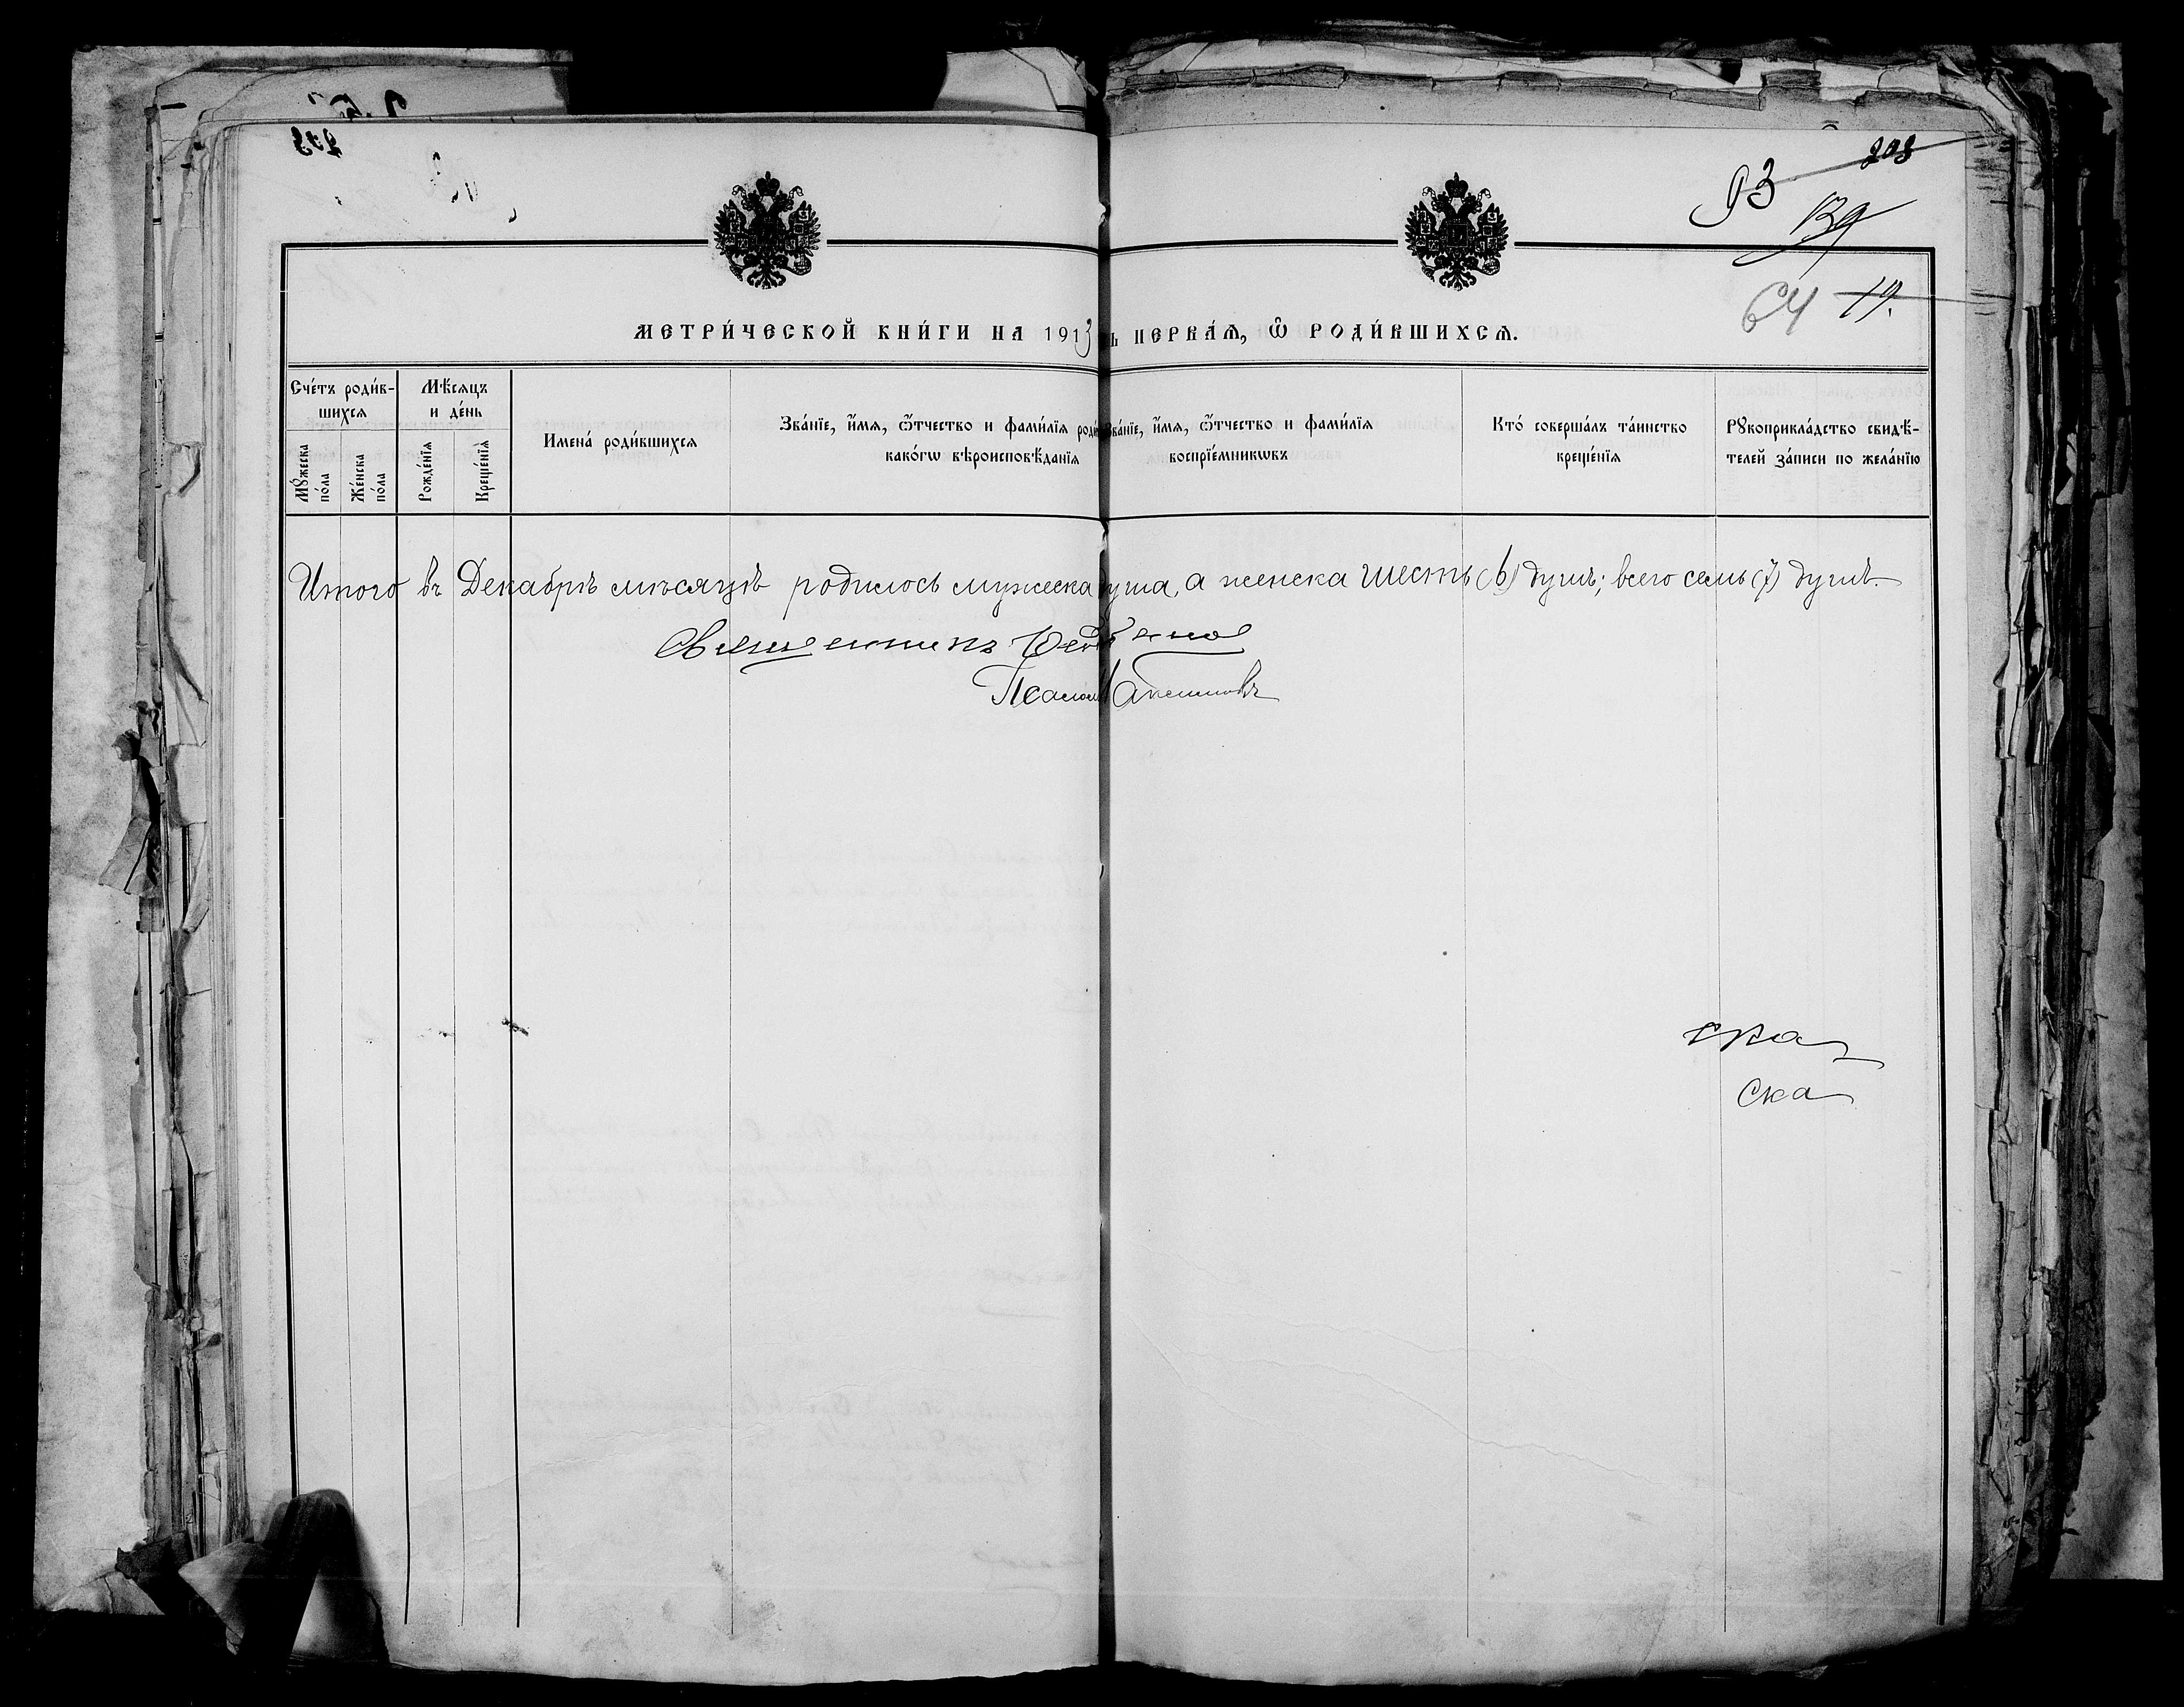 203
93
139
64 19.
МЕТРИ́ЧЕСКОЙ КНИ́ГИ НА 1913
ПЕРВА́Ѧ, Ѿ РОДИ́ВШИХСѦ.
Сче́тъ роди́в-
шихсѧ
Мꙋ́жеска
по́ла
Же́нска
по́ла
Мѣ́сѧцъ
и де́нь
Рожде́нїѧ
Креще́нїѧ
Имена́ роди́вшихсѧ
Зва́нїе, и҆́мѧ, ѻ҆́тчество и фами́лїѧ роди
како́гѡ вѣроисповѣ́данїѧ
Зва́нїе, и҆́мѧ, ѻ҆́тчество и фами́лїѧ
воспрїе́мникѡвъ
Кто́ соверша́лъ та́инство
креще́нїѧ
Рꙋкоприкла́дство свидѣ́-
телей за́писи по жела́нїю
Итого въ Декабрѣ мѣсяцѣ родилось мужеска душа, а женска шесть (6) душъ; всего семь (7) душъ.
Священникъ
Псалом Максимовъ
ска
ска